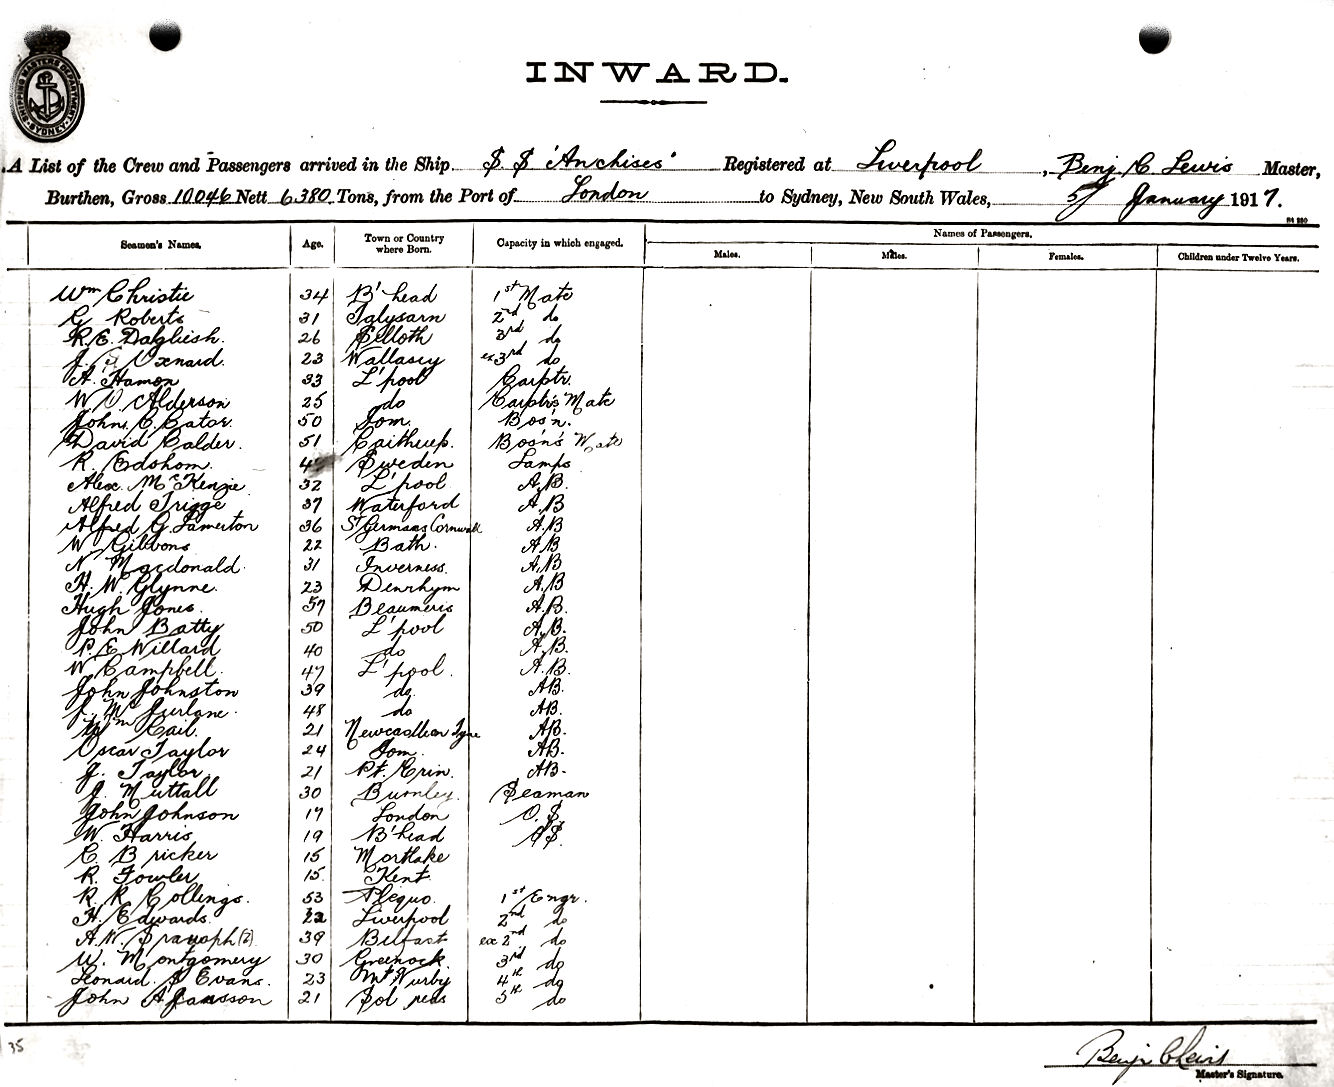 SHIPPING MASTERS DEPARTMENT
SYDNEY
INWARD.
A List of the Crew and Passengers arrived in the Ship S. S 'Anchises' Registered at Liverpool, Benj C Lewis Master,
Burthen, Gross 10046 Nett 6380 Tons, from the Port of London to Sydney, New South Wales, 5/ January 1917.
Names of Passengers.
Seamen's Names. Age. Town or Country where Born. Capacity in which engaged. Males. Males. Females. Children under Twelve Years.
Wm Christie 34 B'head 1st Mate
G Roberts 31 2nd do
R. E. Dalgliesh. 26 Silloth 3rd do
J. S Oxnard. 23 Wallasey ex 3rd do
A. Hamon 33 L'pool Carptr.
W O. Alderson 25 do Carptr's Mate
John. C. Cator. 50 Iom. Bos'n.
David Calder. 51 Bos'n's Mate
R. Edshom. Sweden Lamps
Alex. McKenzie 32 L'pool A.B.
Alfred Trigge 37 Waterford A.B
Alfred G. Lamerton 36 St Germans Cornwall A.B
W Gibbons 22 Bath. A.B
N Macdonald. 31 Inverness. A.B
H. W. Glynne. 23 A.B.
Hugh Jones. 57 Beaumeris A.B.
John Batty 50 L'pool A.B.
P. E Willard 40 do A.B.
W Campbell. 47 L'pool. A.B.
John Johnston 39 do. AB.
J. McFurlane. 48 do AB.
Wm Cail. 21 Newcastleon Tyne AB.
Oscar Taylor 24 Iom. AB.
J. Taylor 21 Pt. Erin. AB.
J. Nuttall 30 Burnley. Seaman
John Johnson 17 London O.S.
W. Harris 19 B'head OS.
C. Bricker 15 Mortlake
R. Fowler 15. Kent
R R Collings. 53 1st Engr.
H. Edwards. 22 Liverpool 2nd do
A. W. (2) 39 Belfast ex 2nd do
W. Montgomery 30 Greenock. 3rd do
Leonard. S Evans. 23 4th do
John A Jansson 21 5th do
35
Benj C Lewis
Master's Signature.